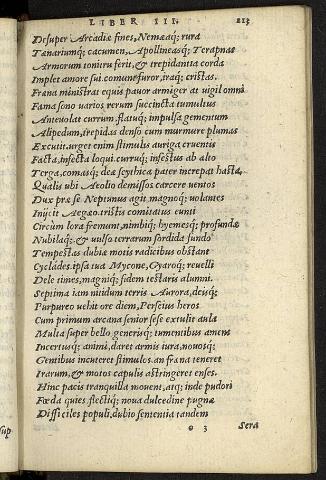 LIBER III. 213
Desuper Arcadiæ fines, Nemæaq; rura
Tænariumq; cacumen, Apollineasq; Terapnas
Armorum tonitru ferit, & trepidantia corda
Implet amore sui. comunt furor, iraq; cristas.
Frena ministrat equis pauor armiger at uigil omni
Fama sono uarios rerum succincta tumultus
Anteuolat currum, flatuq; impulsa gementum
Alipedum, trepidas denso cum murmure plumas
Excutit. urget enim stimulis auriga cruentis
Facta, infecta loqui. curruq; infestus ab alto
Terga, comasq; deæ scythica pater increpat hasta,
Qualis ubi Aeolio demissos carcere uentos
Dux præ se Neptunus agit, magnoq; uolantes
Inijcit Aegæo. tristis comitatus eunti
Circùm lora fremunt, nimbiq; hyemesq; profundæ
Nubilaq; & uulso terrarum sordida fundo
Tempestas dubiæ motis radicibus obstant
Cyclades. ipsa tua Mycone, Gyaroq; reuelli
Dele times, magniq; fidem testaris alumni.
Septima iam nitidum terris Aurora, deisq;
Purpureo uehit ore diem, Perseius heros
Cum primum arcana senior sese extulit aula
Multa super bello, generisq; tumentibus amens
Incertusq; animi, daret armis iura, nouosq;
Gentibus incuteret stimulos. an frana teneret
Irarum, & motos capulis astringeret enses.
Hinc pacis tranquilla mouent, atq; inde pudori
Fœda quies, flectiq; noua dulcedine pugnæ
Difficiles populi, dubio sententia tandem
o 3 Sera
Sup